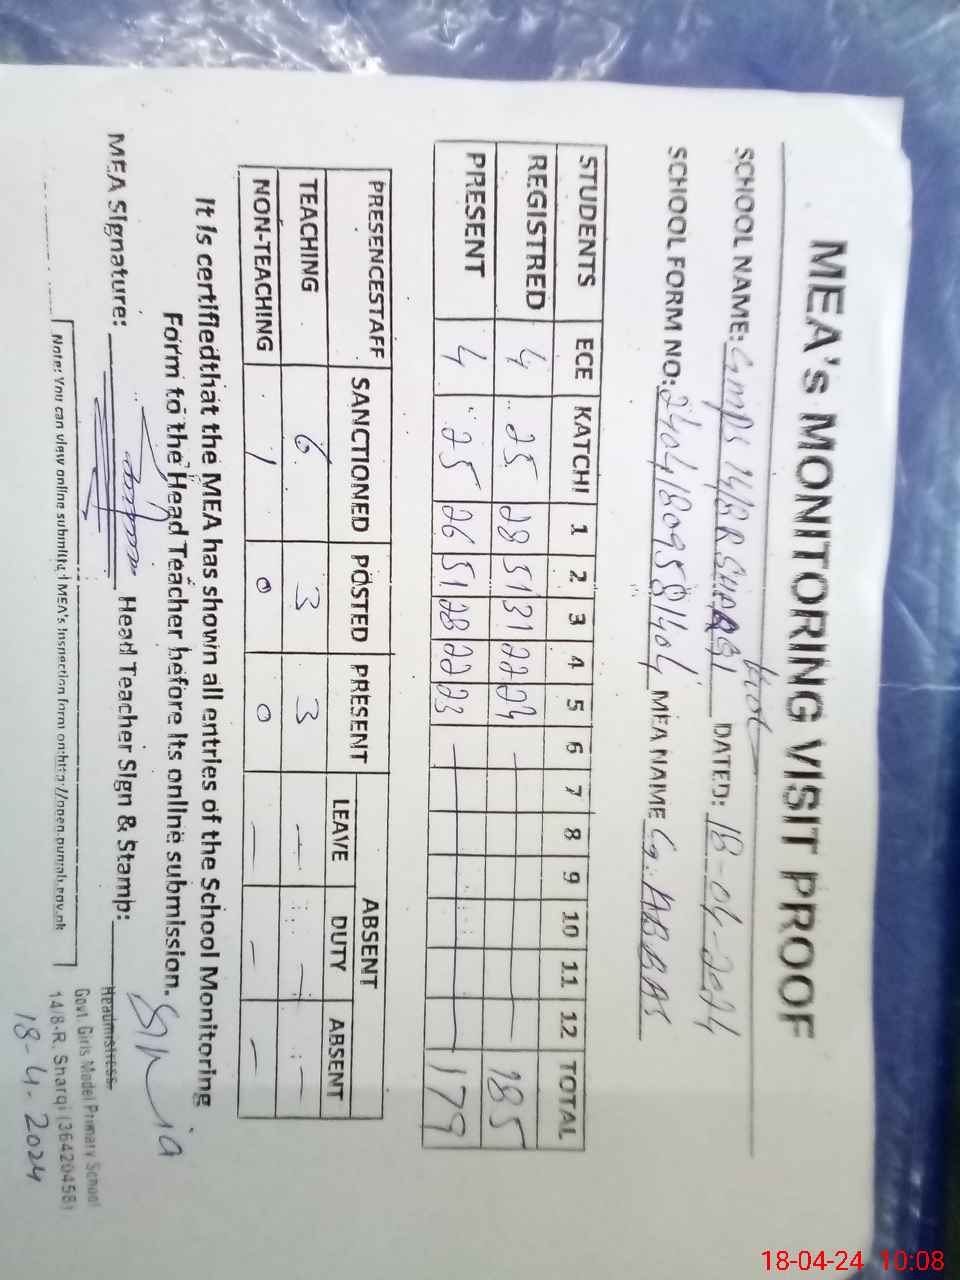 MEA's MONITORING VISIT PROOF
SCHOOL NAME: GMPS 14/8R SHARQI DATED: 18-04-2024
SCHOOL FORM NO: MEA NAME G. ABBAS
STUDENTS ECE KATCHI 1 2 3 4 5 6 7 8 9 10 11 12 TOTAL
REGISTRED 4 25 28 51 31 22 24 185
PRESENT 4 25 26 51 28 22 23 179
PRESENCESTAFF SANCTIONED POSTED PRESENT ABSENT
LEAVE DUTY ABSENT
TEACHING 6 3 3 - - -
NON-TEACHING 1 0 0 - - -
It is certifiedthat the MEA has shown all entries of the School Monitoring
Form to the Head Teacher before its online submission.
MEA Signature: Head Teacher Sign & Stamp:
Headmistress
Govt. Girls Model Primary School
14/8-R. Sharqi (36420458)
18-4-2024
Note: You can view online submitted MEA's Inspection form on:
18-04-24 10:08